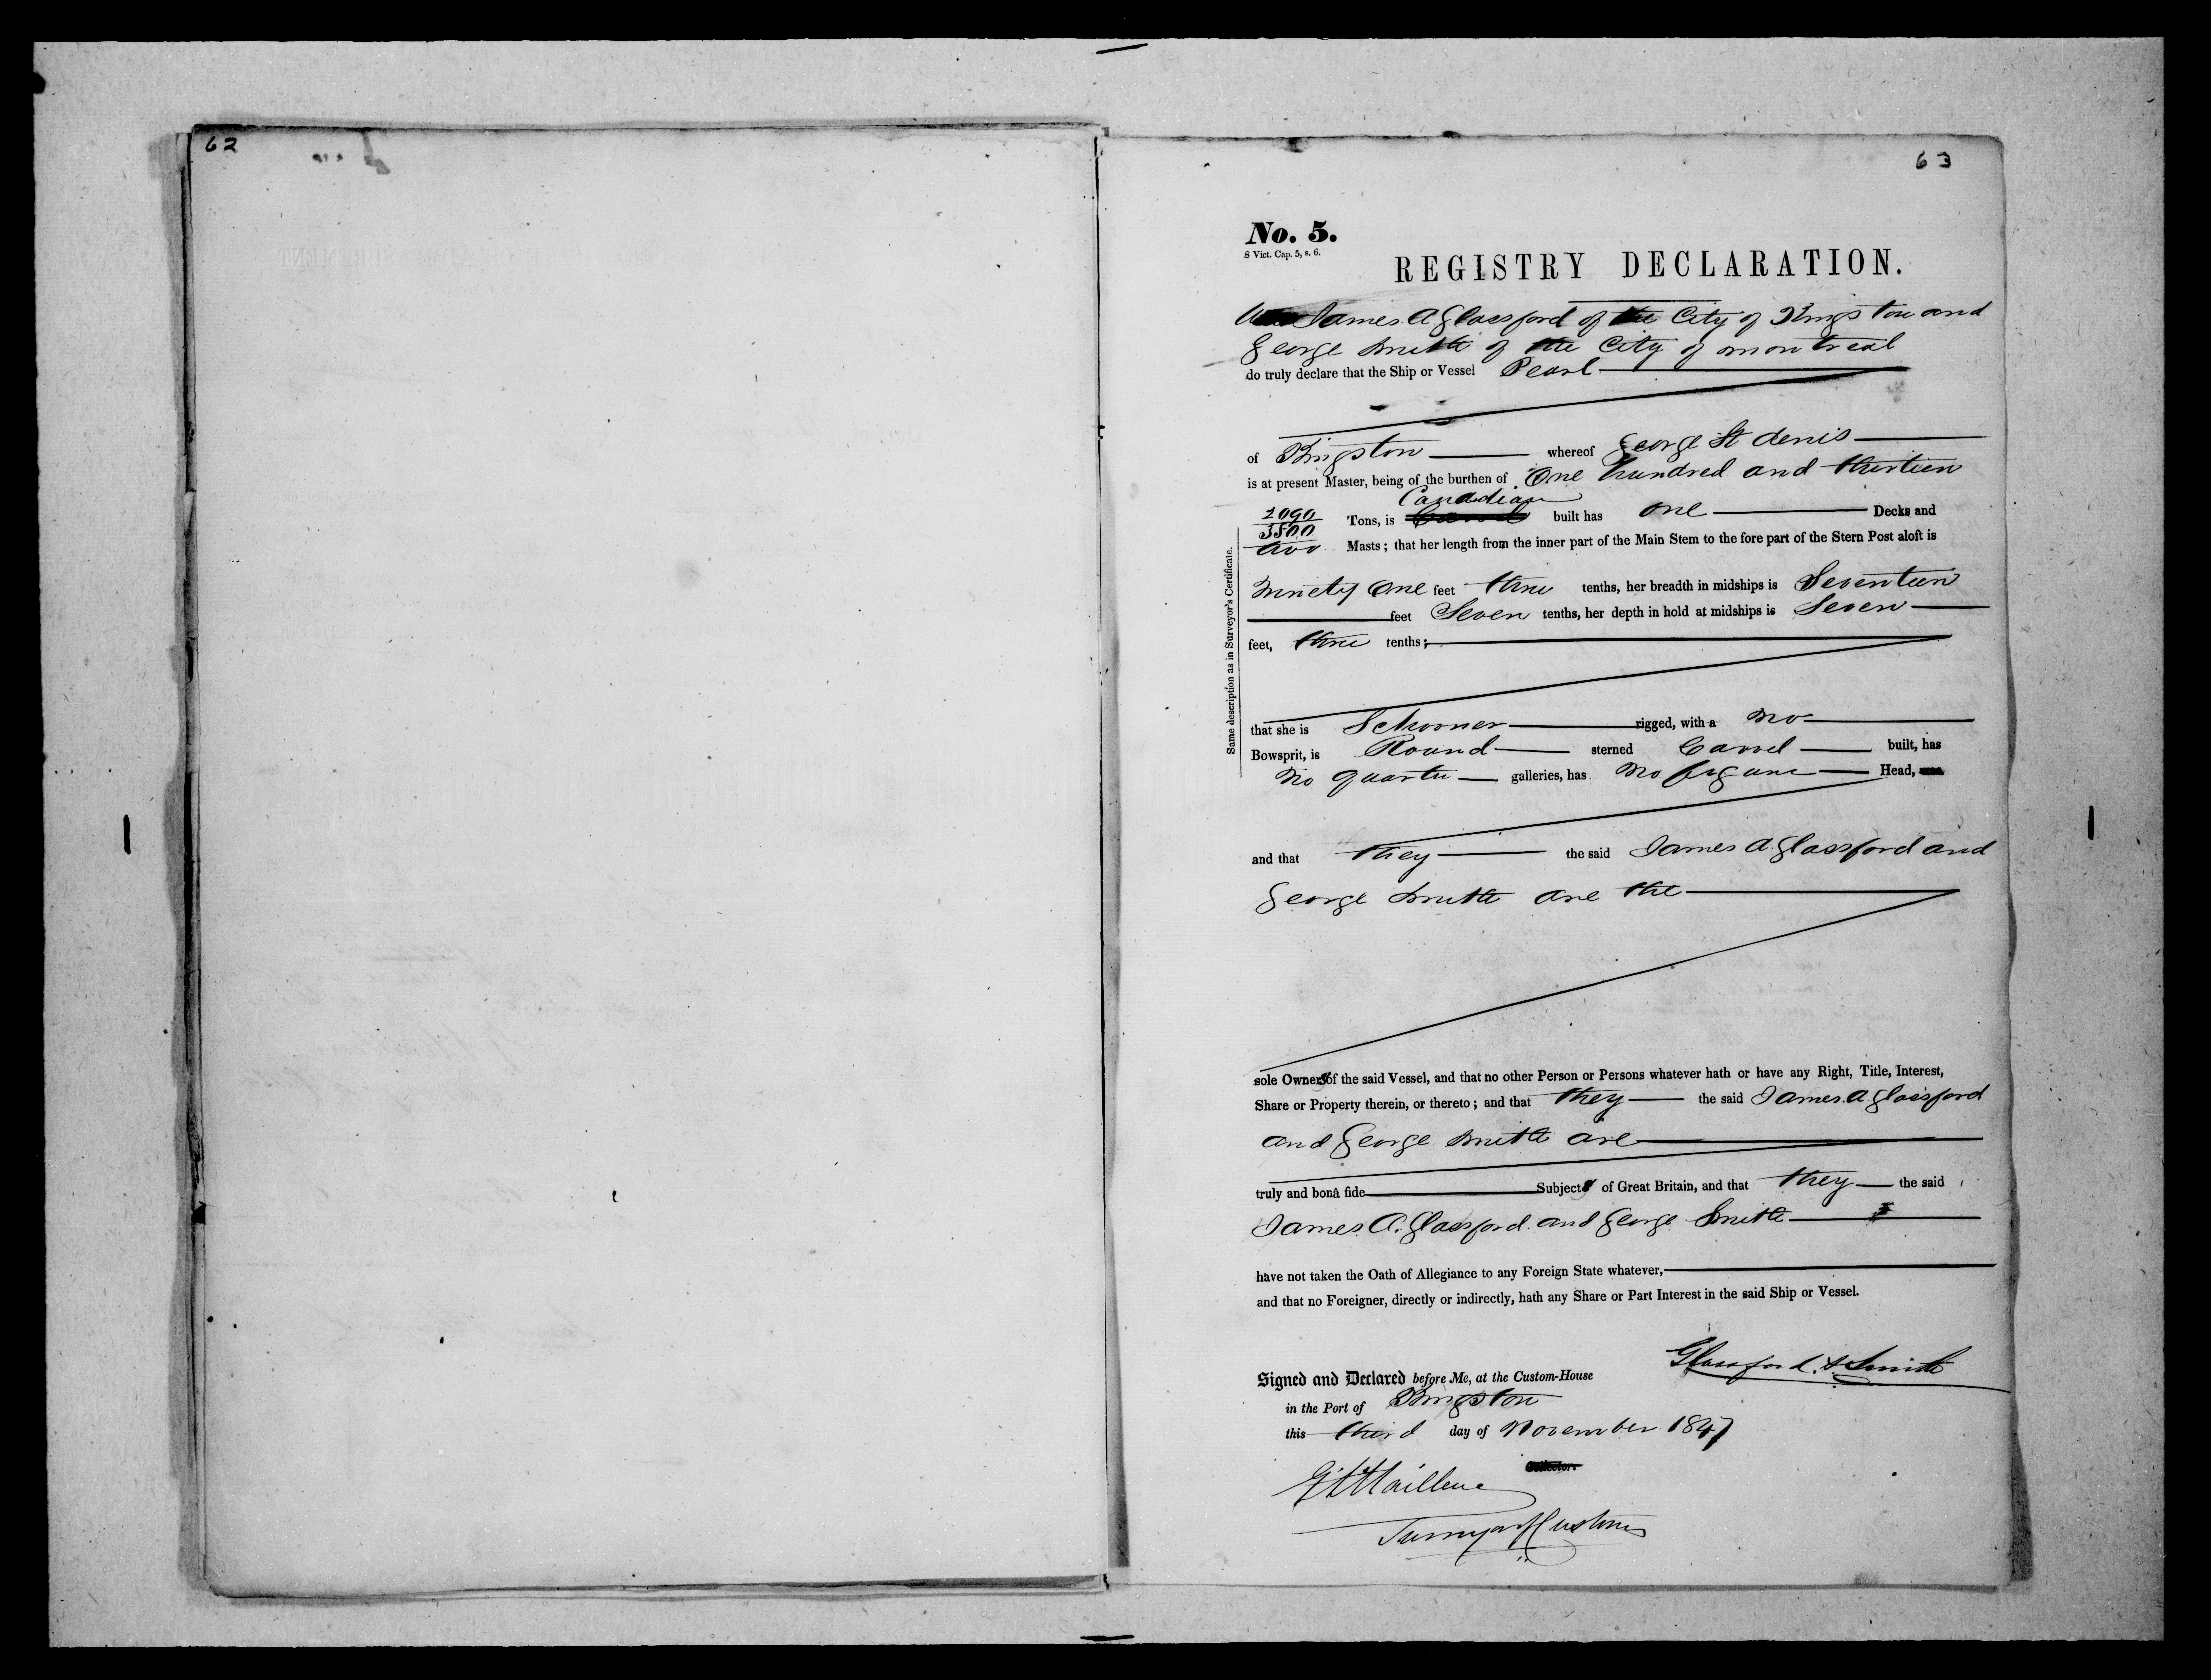 62
63
No. 5.
8 Vict. Cap. 5, s. 6.
REGISTRY DECLARATION.
We James A Glassford of the City of Kingston and
George Smith of the City of Montreal
do truly declare that the Ship or Vessel Pearl
of Kingston whereof George St denis
is at present Master, being of the burthen of One hundred and thirteen
Canadian
2090/3500 Tons, is built has one Decks and
two Masts; that her length from the inner part of the Main Stem to the fore part of the Stern Post aloft is
Ninety One feet three tenths, her breadth in midships is Seventeen
feet Seven tenths, her depth in hold at midships is Seven
feet, three tenths;
Same description as in Surveyor's Certificate.
that she is Schooner rigged, with a no
Bowsprit, is Round sterned Carvel built, has
no quarter galleries, has no figure Head,
and that they the said James A Glassford and
George Smith are the
sole Owners of the said Vessel, and that no other Person or Persons whatever hath or have any Right, Title, Interest,
Share or Property therein, or thereto; and that they the said James A Glassford
and George Smith are
truly and bonâ fide Subjects of Great Britain, and that they the said
James A. Glassford and George Smith
have not taken the Oath of Allegiance to any Foreign State whatever,
and that no Foreigner, directly or indirectly, hath any Share or Part Interest in the said Ship or Vessel.
Glassford & Smith
Signed and Declared before Me, at the Custom-House
in the Port of Kingston
this third day of November 1847
Collector.